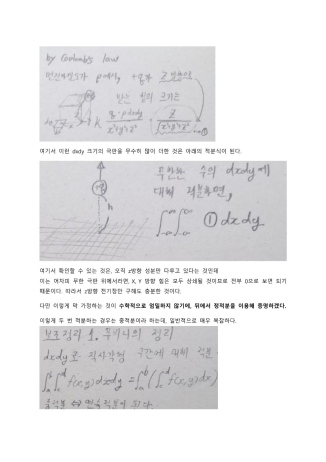 by Coulomb's law
면전하밀도가 ρ에서, +q가 Z 방향으로
받는 힘의 크기는
k q·ρdxdy / x²+y²+z² · z / √x²+y²+z² → ①
여기서 이런 dxdy 크기의 극판을 무수히 많이 더한 것은 아래의 적분식이 된다.
무한한 수의 dxdy에
대해 적분하면,
h
∫∫ ① dxdy
여기서 확인할 수 있는 것은, 오직 z방향 성분만 다루고 있다는 것인데
이는 어차피 무한 극판 위에서라면, X, Y 방향 힘은 모두 상쇄될 것이므로 전부 0으로 보면 되기
때문이다. 따라서 z방향 전기장만 구해도 충분한 것이다.
다만 이렇게 막 가정하는 것이 수학적으로 엄밀하지 않기에, 뒤에서 정적분을 이용해 증명하겠다.
이렇게 두 번 적분하는 경우는 중적분이라 하는데, 일반적으로 매우 복잡하다.
보조정리 1. 푸비니의 정리
dxdy로 직사각형 구간에 대해 적분
∫∫f(x,y)dxdy = ∫(∫f(x,y)dx)
중적분 ↔ 반복적분이 된다.